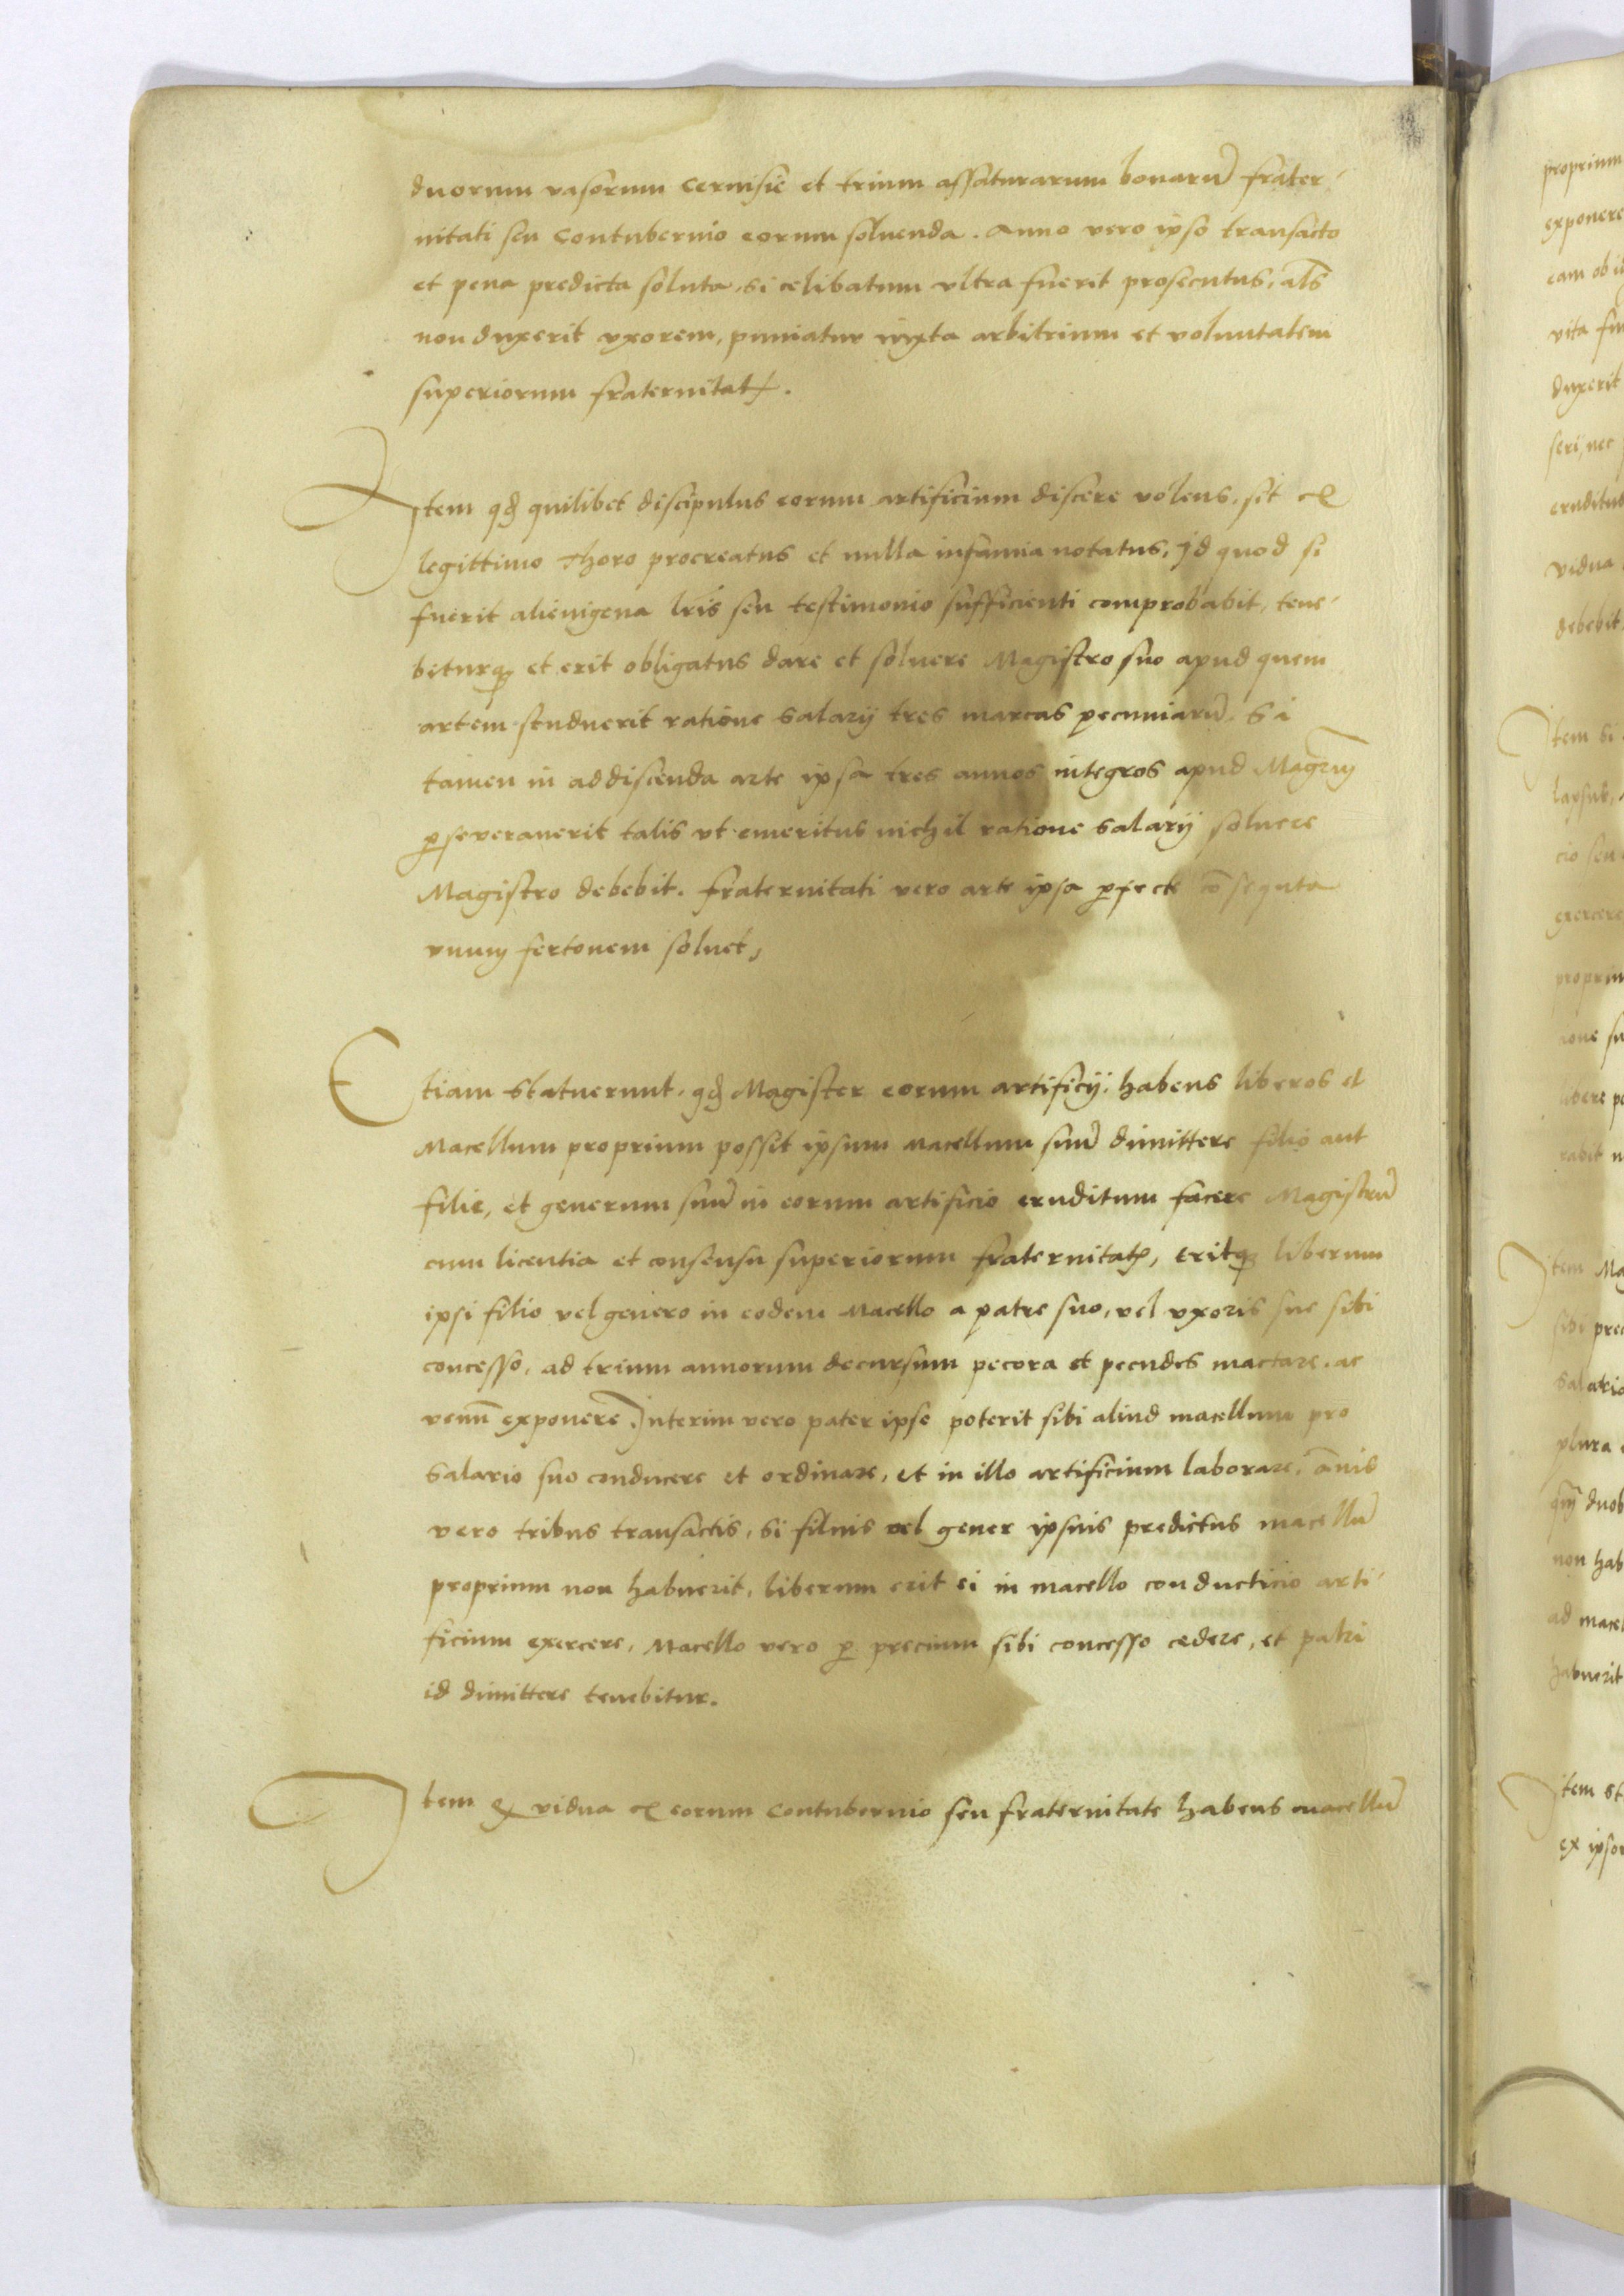 duorum vasorum cervisiē et trium assaturarum bonarū frater-
nitati seu contubernio eorum soluenda. Anno vero ipso transacto
et pena predicta soluta, si celibatum vltra fuerit prosecutus, als
non duxerit vxorem, puniatur iuxta arbitrium et voluntatem
superiorum fraternitatꝭ.
Item qđ quilibet discipulus eorum artificium discere volens, sit ex
legittimo Thoro procreatus et nulla infamia notatus, Id quod si
fuerit alienigena lris seu testimonio sufficienti comprobabit, tene-
biturqꝫ et erit obligatus dare et soluere Magistro suo apud quem
artem studuerit ratione salarij tres marcas pecuniarū. Si
tamen in addiscenda arte ipsa tres annos integros apud Magrm
ꝑseverauerit talis vt emeritus nichil ratione salarij soluere
Magistro debebit. fraternitati vero arte ipsa ꝑfecte cōsequta
vnum fertonem soluet,
Etiam statuerunt, qđ Magister eorum artificij, habens liberos et
Macellum proprium possit ipsum Macellum suū dimittere filio aut
filie, et generum suū in eorum artificio eruditum facere Magistrū
cum licentia et consensu superiorum fraternitatꝭ, eritqꝫ liberum
ipsi filio vel genero in eodem Macello a patre suo, vel vxoris sue sibi
concesso, ad trium annorum decursum pecora et pecudes mactare, ac
venū exponere. Interim vero pater ipse poterit sibi aliud macellum pro
salario suo conducere et ordinare, et in illo artificium laborare, ānis
vero tribus transactis, si filius vel gener ipsius predictus macellū
proprium non habuerit, liberum erit ei in macello conducticio arti-
ficium exercere, Macello vero ꝑ precium sibi concesso cedere, et patri
id dimittere tenebitur.
Item vidua ex eorum contubernio seu fraternitate habens macellū
proprium
exponere
eam ob
vita
duxerit
seri, nec
eruditus
vidua
debebit
Item si
lapsus,
cio seu
exercere
Item
salario
plura
duob
non hab
ad macel
habuerit
Item st
ex ipso